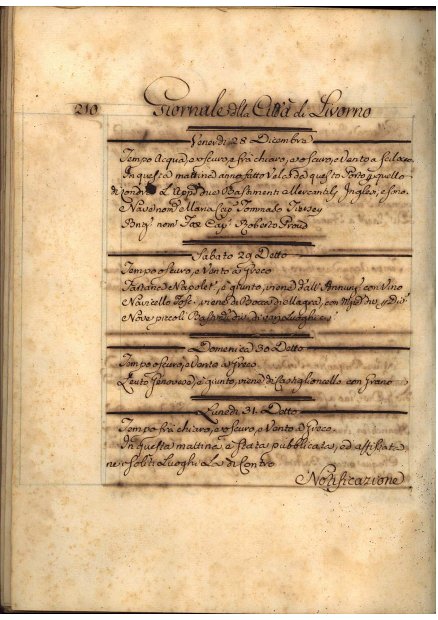 210 Giornale della Città di Livorno
Venerdi 28 Dicembre
Tempo Acqua, e oscuro, e frà chiaro, e oscuro, e Vento a
In questa mattina anno fatto Vela da questo Porto p quello
di Londra L'App due Bastimenti Inglesi, e sono
Nave nom.ª Maria Cap.º Tommaso
nom.ª Fox Cap.º Roberto Proud
Sabato 29 Detto
Tempo oscuro, e Vento à Greco
Tartana Napolet.ª è giunta, viene dall' con Vino
Navicello Tosc.º viene di Bocca di Magra, con
Nove piccoli Bastim.ti di varj Luoghi
Domenica 30 Detto
Tempo oscuro, e Vento à Greco
Leuto Genovese, è giunto, viene di Castiglioncello con Grano
Lunedi 31. Detto
Tempo frà chiaro, e oscuro, e Vento à Greco
In questa mattina è stata pubblicata, ed affissa
ne soliti Luoghi La di Contro
Notificazione